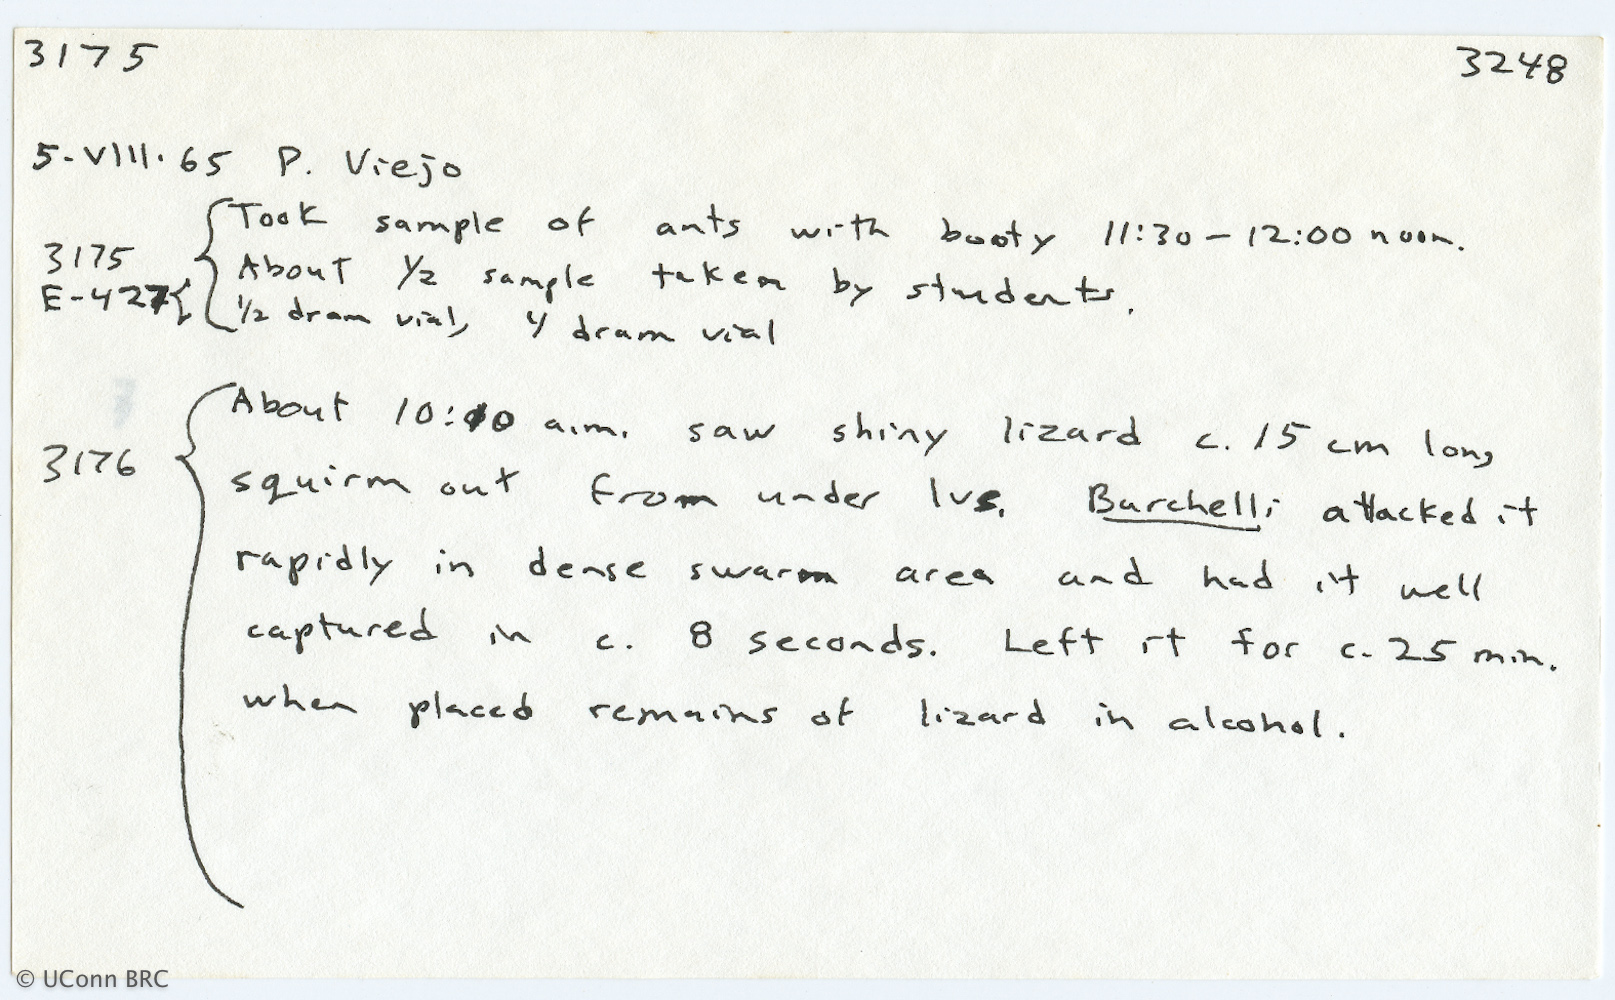 3175 3248
5-VIII-65 P. Viejo
Took sample of ants with booty 11:30-12:00 noon.
3175 About 1/2 sample taken by students.
E-427 1/2 dram vial, 4 dram vial
About 10:10 a.m. saw shiny lizard c. 15 cm long
3176 squirm out from under lvs. Burchelli attacked it
rapidly in dense swarm area and had it well
captured in c. 8 seconds. Left it for c. 25 min.
when placed remains of lizard in alcohol.
© UConn BRC